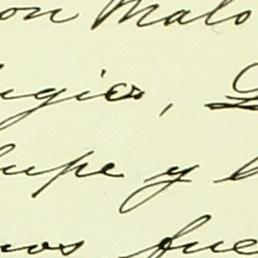 on Malo
ugio,
lupe y l
nos fue